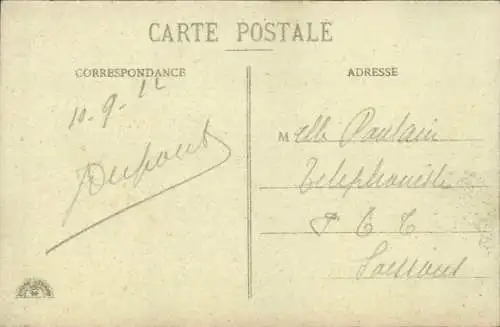 CARTE POSTALE
CORRESPONDANCE
10-9-12
Dupont
ADRESSE
Melle Poulain
Téléphoniste
P T T
Soissons